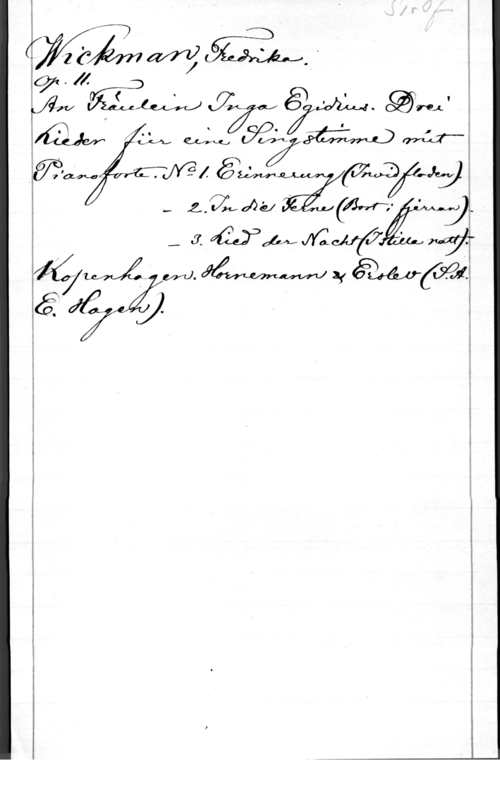 Wickman, Fredrika.
Op. 11.
An Fräulein Inga Egidius. Drei
Lieder für eine Singstimme mit
Pianoforte. No 1. Erinnerung (Invid floden)
- 2. In die Ferne (Bort i fjerran).
- 3. Lied der Nacht (I stilla natt).
Kopenhagen. Hornemann & Erslev (S. A.
E. Hagen).